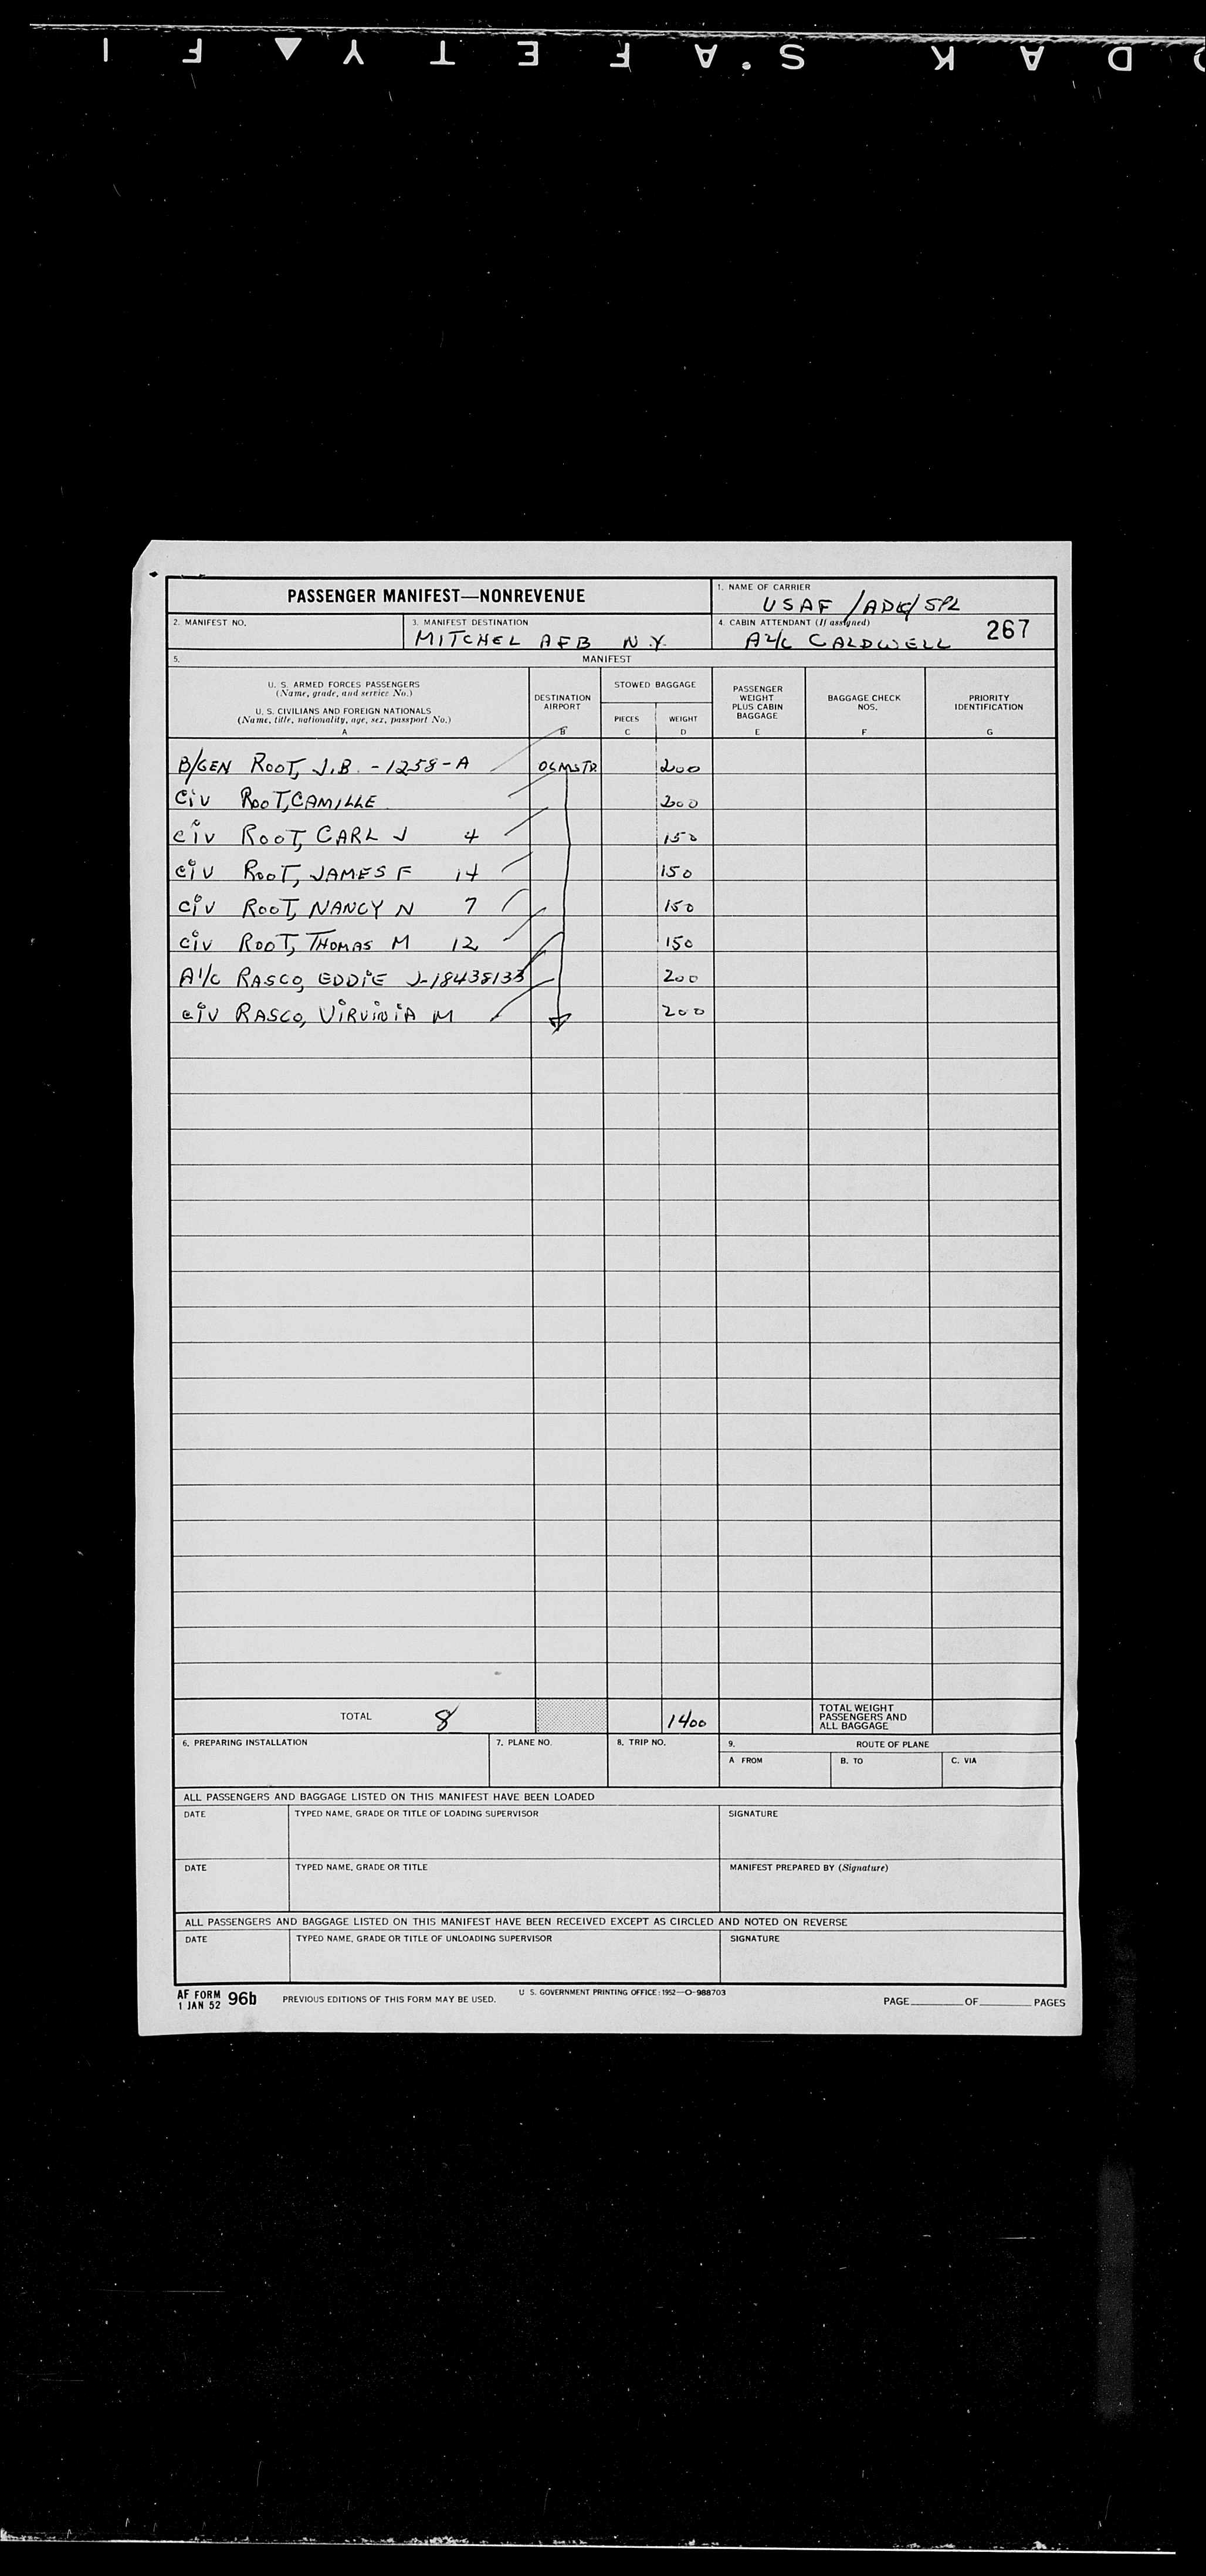 KODAK SAFETY FI
PASSENGER MANIFEST—NONREVENUE
1. NAME OF CARRIER
USAF /ADC/ SPL
2. MANIFEST NO.
3. MANIFEST DESTINATION
MITCHEL AFB N.Y.
4. CABIN ATTENDANT (If assigned)
A2/C CALDWELL
267
5.
MANIFEST
U. S. ARMED FORCES PASSENGERS
(Name, grade, and service No.)
U. S. CIVILIANS AND FOREIGN NATIONALS
(Name, title, nationality, age, sex, passport No.)
A
DESTINATION
AIRPORT
B
STOWED BAGGAGE
PIECES
C
WEIGHT
D
PASSENGER
WEIGHT
PLUS CABIN
BAGGAGE
E
BAGGAGE CHECK
NOS.
F
PRIORITY
IDENTIFICATION
G
B/GEN ROOT, J.B. -1258-A OLMSTR 200
CIV ROOT, CAMILLE 200
CIV ROOT, CARL J 4 150
CIV ROOT, JAMES F 14 150
CIV ROOT, NANCY N 7 150
CIV ROOT, THOMAS M 12 150
A1/C RASCO, EDDIE J-18438133 200
CIV RASCO, VIRVINIA M 200
TOTAL 8 1400
TOTAL WEIGHT
PASSENGERS AND
ALL BAGGAGE
6. PREPARING INSTALLATION
7. PLANE NO.
8. TRIP NO.
9. ROUTE OF PLANE
A FROM
B. TO
C. VIA
ALL PASSENGERS AND BAGGAGE LISTED ON THIS MANIFEST HAVE BEEN LOADED
DATE
TYPED NAME, GRADE OR TITLE OF LOADING SUPERVISOR
SIGNATURE
DATE
TYPED NAME, GRADE OR TITLE
MANIFEST PREPARED BY (Signature)
ALL PASSENGERS AND BAGGAGE LISTED ON THIS MANIFEST HAVE BEEN RECEIVED EXCEPT AS CIRCLED AND NOTED ON REVERSE
DATE
TYPED NAME, GRADE OR TITLE OF UNLOADING SUPERVISOR
SIGNATURE
AF FORM
1 JAN 52 96b
PREVIOUS EDITIONS OF THIS FORM MAY BE USED.
U S. GOVERNMENT PRINTING OFFICE: 1952—O-988703
PAGE OF PAGES